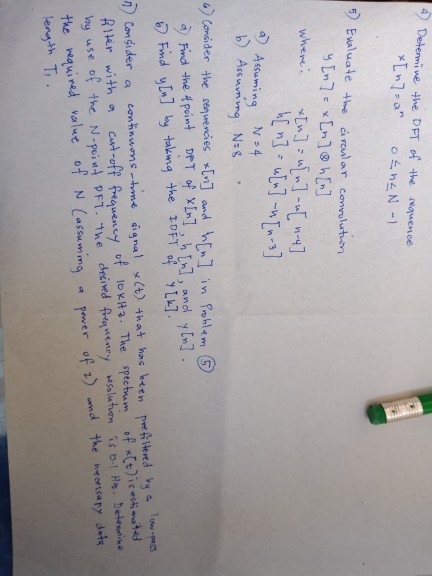 4) Determine the DFT of the sequence
x[n] = aⁿ 0 ≤ n ≤ N - 1
5) Evaluate the circular convolution
y[n] = x[n] ⊗ h[n]
where: x[n] = u[n] - u[n-4]
h[n] = u[n] - u[n-3]
a) Assuming N = 4
b) Assuming N = 8.
6) Consider the sequences x[n] and h[n] in Problem 5
a) Find the 4 point DFT of x[n], h[n], and y[n].
b) Find y[n] by taking the IDFT of Y[k].
7) Consider a continuous-time signal x(t) that has been prefiltered by a low-pass
filter with a cut-off frequency of 10 kHz. The spectrum of x[t] is estimated
by use of the N-point DFT. The desired frequency resolution is 0.1 Hz. Determine
the required value of N (assuming a power of 2) and the necessary data
length T₁.